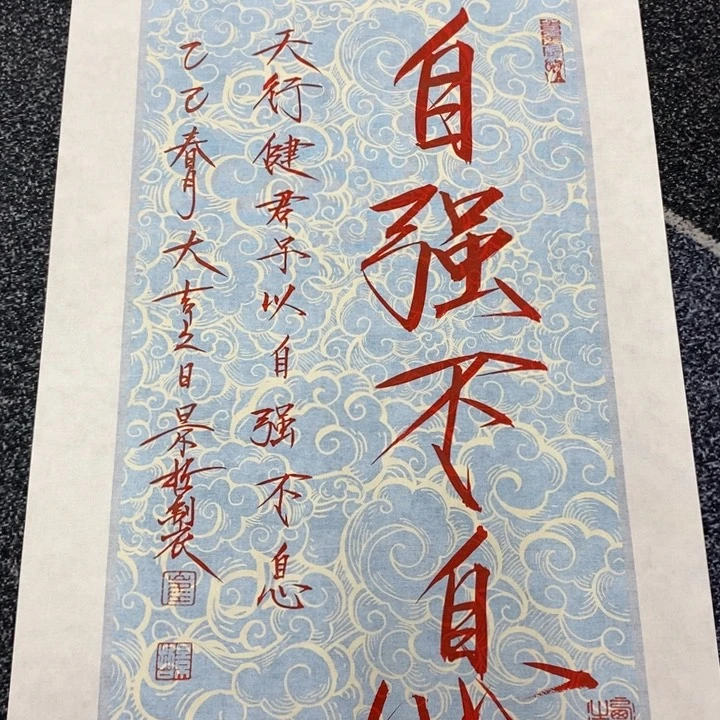 自强不息
天行健君子以自强不息
乙巳春月大吉之日景